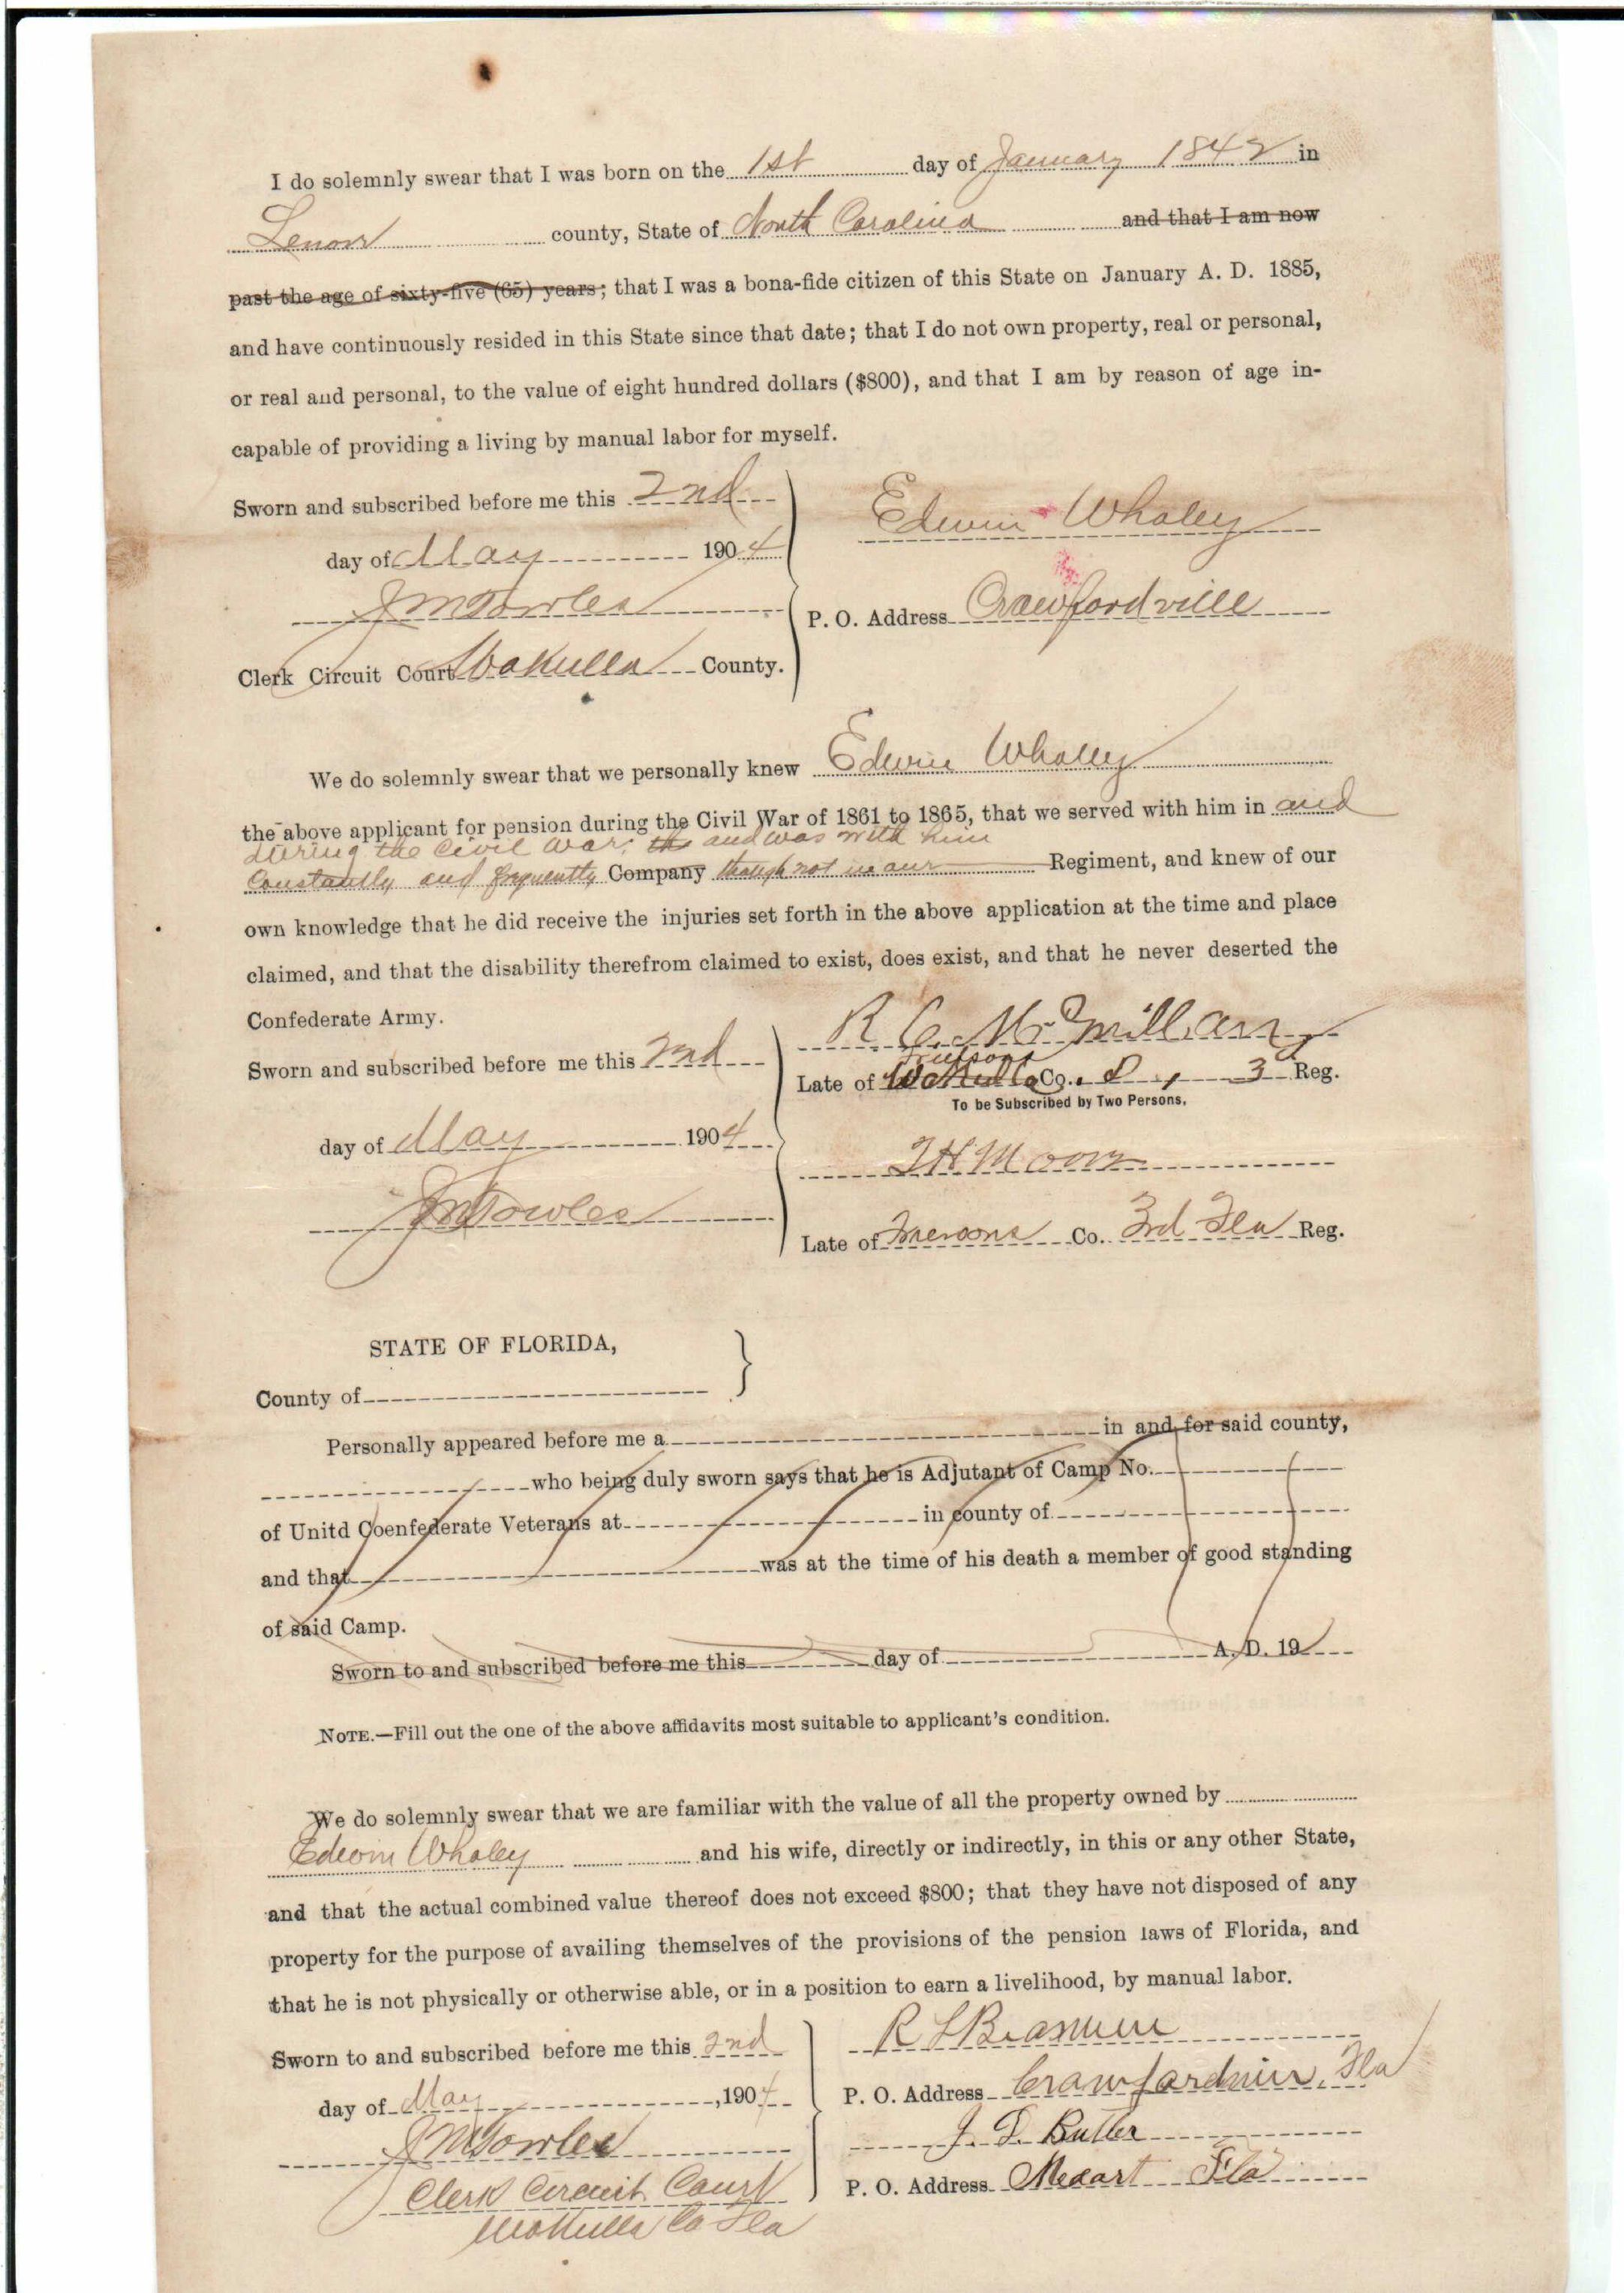 I do solemnly swear that I was born on the 1st day of January 1842 in
Lenoir county, State of North Carolina and that I am now
past the age of sixty-five (65) years; that I was a bona-fide citizen of this State on January A. D. 1885,
and have continuously resided in this State since that date; that I do not own property, real or personal,
or real and personal, to the value of eight hundred dollars ($800), and that I am by reason of age in-
capable of providing a living by manual labor for myself.
Sworn and subscribed before me this 2nd
day of May 1904
J M Towles
Clerk Circuit Court Wakulla County.
Edwin Whaley
P. O. Address Crawfordville
We do solemnly swear that we personally knew Edwin Whaley
the above applicant for pension during the Civil War of 1861 to 1865, that we served with him in and
during the Civil War, the and was with him
Constantly and frequently Company though not in our Regiment, and knew of our
own knowledge that he did receive the injuries set forth in the above application at the time and place
claimed, and that the disability therefrom claimed to exist, does exist, and that he never deserted the
Confederate Army.
Sworn and subscribed before me this 2nd
day of May 1904
J M Towles
R. C. McMillan
Late of Co. D, 3d Reg.
To be Subscribed by Two Persons.
T H Moore
Late of Co. 3rd Fla Reg.
STATE OF FLORIDA,
County of
Personally appeared before me a in and for said county,
who being duly sworn says that he is Adjutant of Camp No.
of Unitd Coenfederate Veterans at in county of
and that was at the time of his death a member of good standing
of said Camp.
Sworn to and subscribed before me this day of A. D. 19
NOTE.—Fill out the one of the above affidavits most suitable to applicant's condition.
We do solemnly swear that we are familiar with the value of all the property owned by
Edwin Whaley and his wife, directly or indirectly, in this or any other State,
and that the actual combined value thereof does not exceed $800; that they have not disposed of any
property for the purpose of availing themselves of the provisions of the pension laws of Florida, and
that he is not physically or otherwise able, or in a position to earn a livelihood, by manual labor.
Sworn to and subscribed before me this 2nd
day of May, 1904
J M Towles
Clerk Circuit Court
Wakulla Co Fla
R L
P. O. Address Crawfordville, Fla
J. D. Butler
P. O. Address Medart Fla